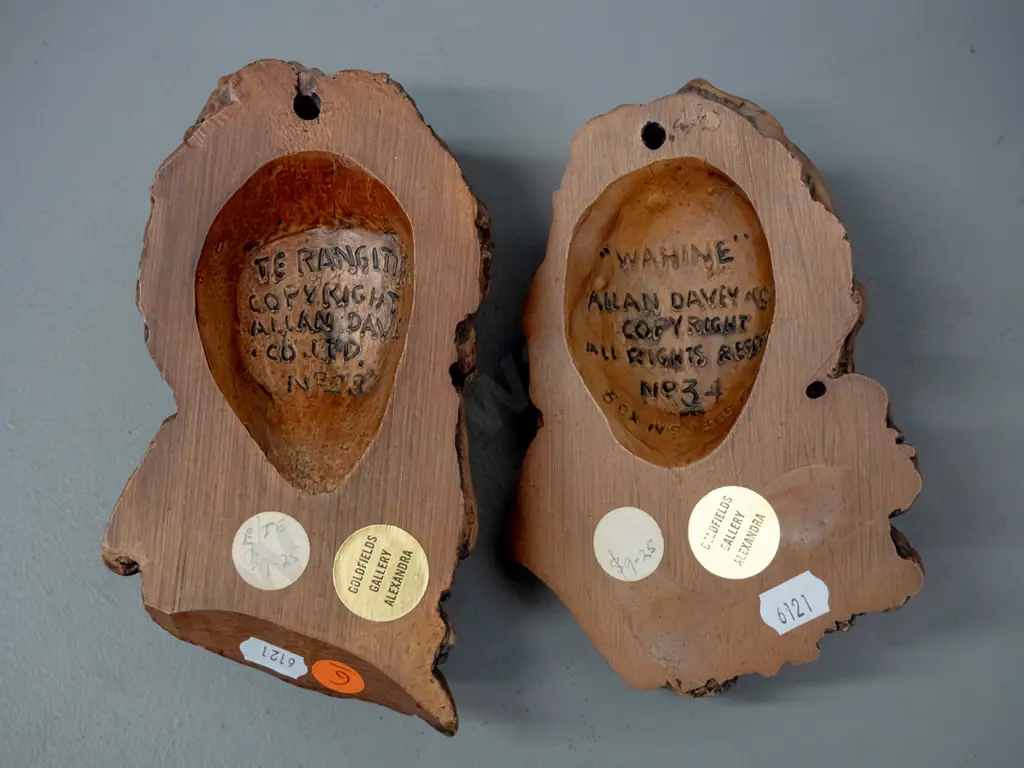 TE RANGITI
COPYRIGHT
ALLAN DAVE
CO. LTD.
Nº 23
$9-25
GOLDFIELDS
GALLERY
ALEXANDRA
6121
6
"WAHINE"
ALLAN DAVEY
COPYRIGHT
ALL RIGHTS RESE
Nº 34
BOX Nº
$9-25
GOLDFIELDS
GALLERY
ALEXANDRA
6121